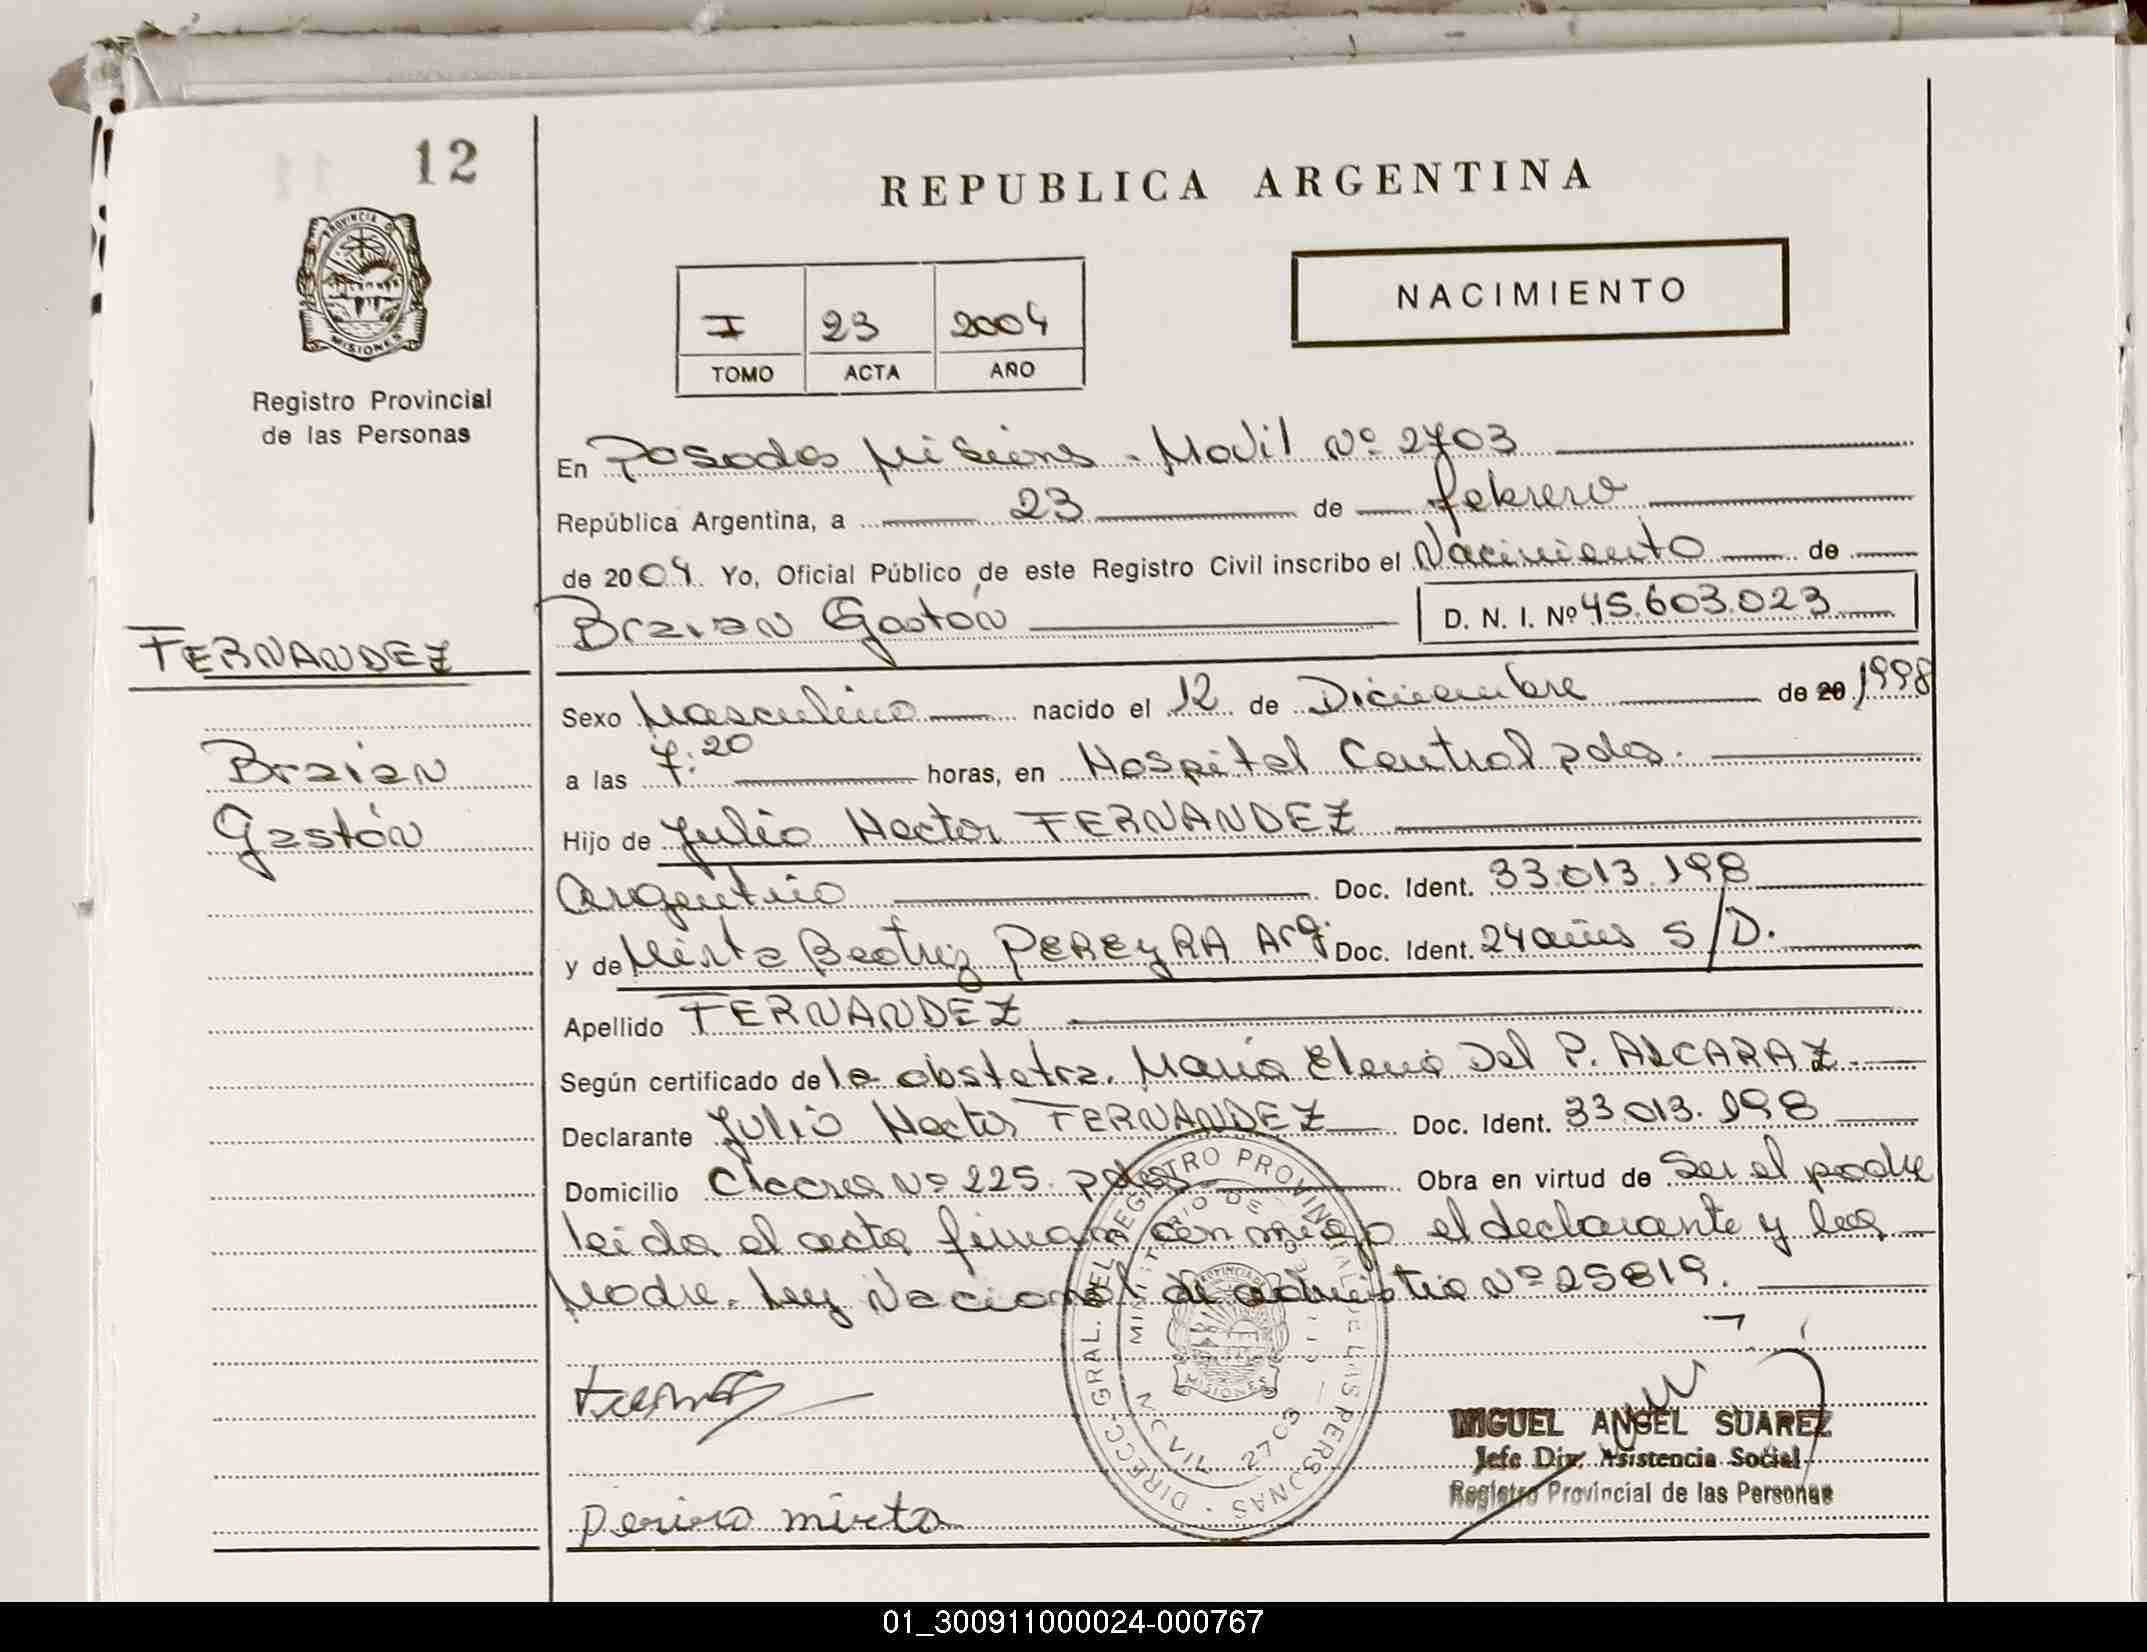 12
REPUBLICA ARGENTINA
NACIMIENTO
I 23 2004
TOMO ACTA AÑO
PROVINCIA DE
MISIONES
Registro Provincial
de las Personas
En Posadas Misiones - Movil Nº 2703
República Argentina, a 23 de febrero
de 2004. Yo, Oficial Público de este Registro Civil inscribo el Nacimiento de
Braian Gastón D. N. I. Nº 45.603.023
FERNANDEZ
Sexo Masculino nacido el 12 de Diciembre de 20 1998
Braian
Gastón
a las 7:20 horas, en Hospital Central pdas.
Hijo de Julio Hector FERNANDEZ
Argentino Doc. Ident. 33.013.198
y de Mirta Beatriz PEREyRA Arg. Doc. Ident. 24 años S/D.
Apellido FERNANDEZ
Según certificado de la obstetra. María Elena Del P. ALCARAZ.
Declarante Julio Hector FERNANDEZ Doc. Ident. 33 013.198
Domicilio Chacra Nº 225. pdas Obra en virtud de Ser el padre
leida el acta firman con migo el declarante y la
Madre. Ley Nacional de Nº 25819.
DIRECC. GRAL. DEL REGISTRO PROVINCIAL DE LAS PERSONAS
MOVIL 2703
PROVINCIA
MISIONES
MIGUEL ANGEL SUAREZ
Jefe Dir. Asistencia Social
Registro Provincial de las Personas
mirta
01_300911000024-000767